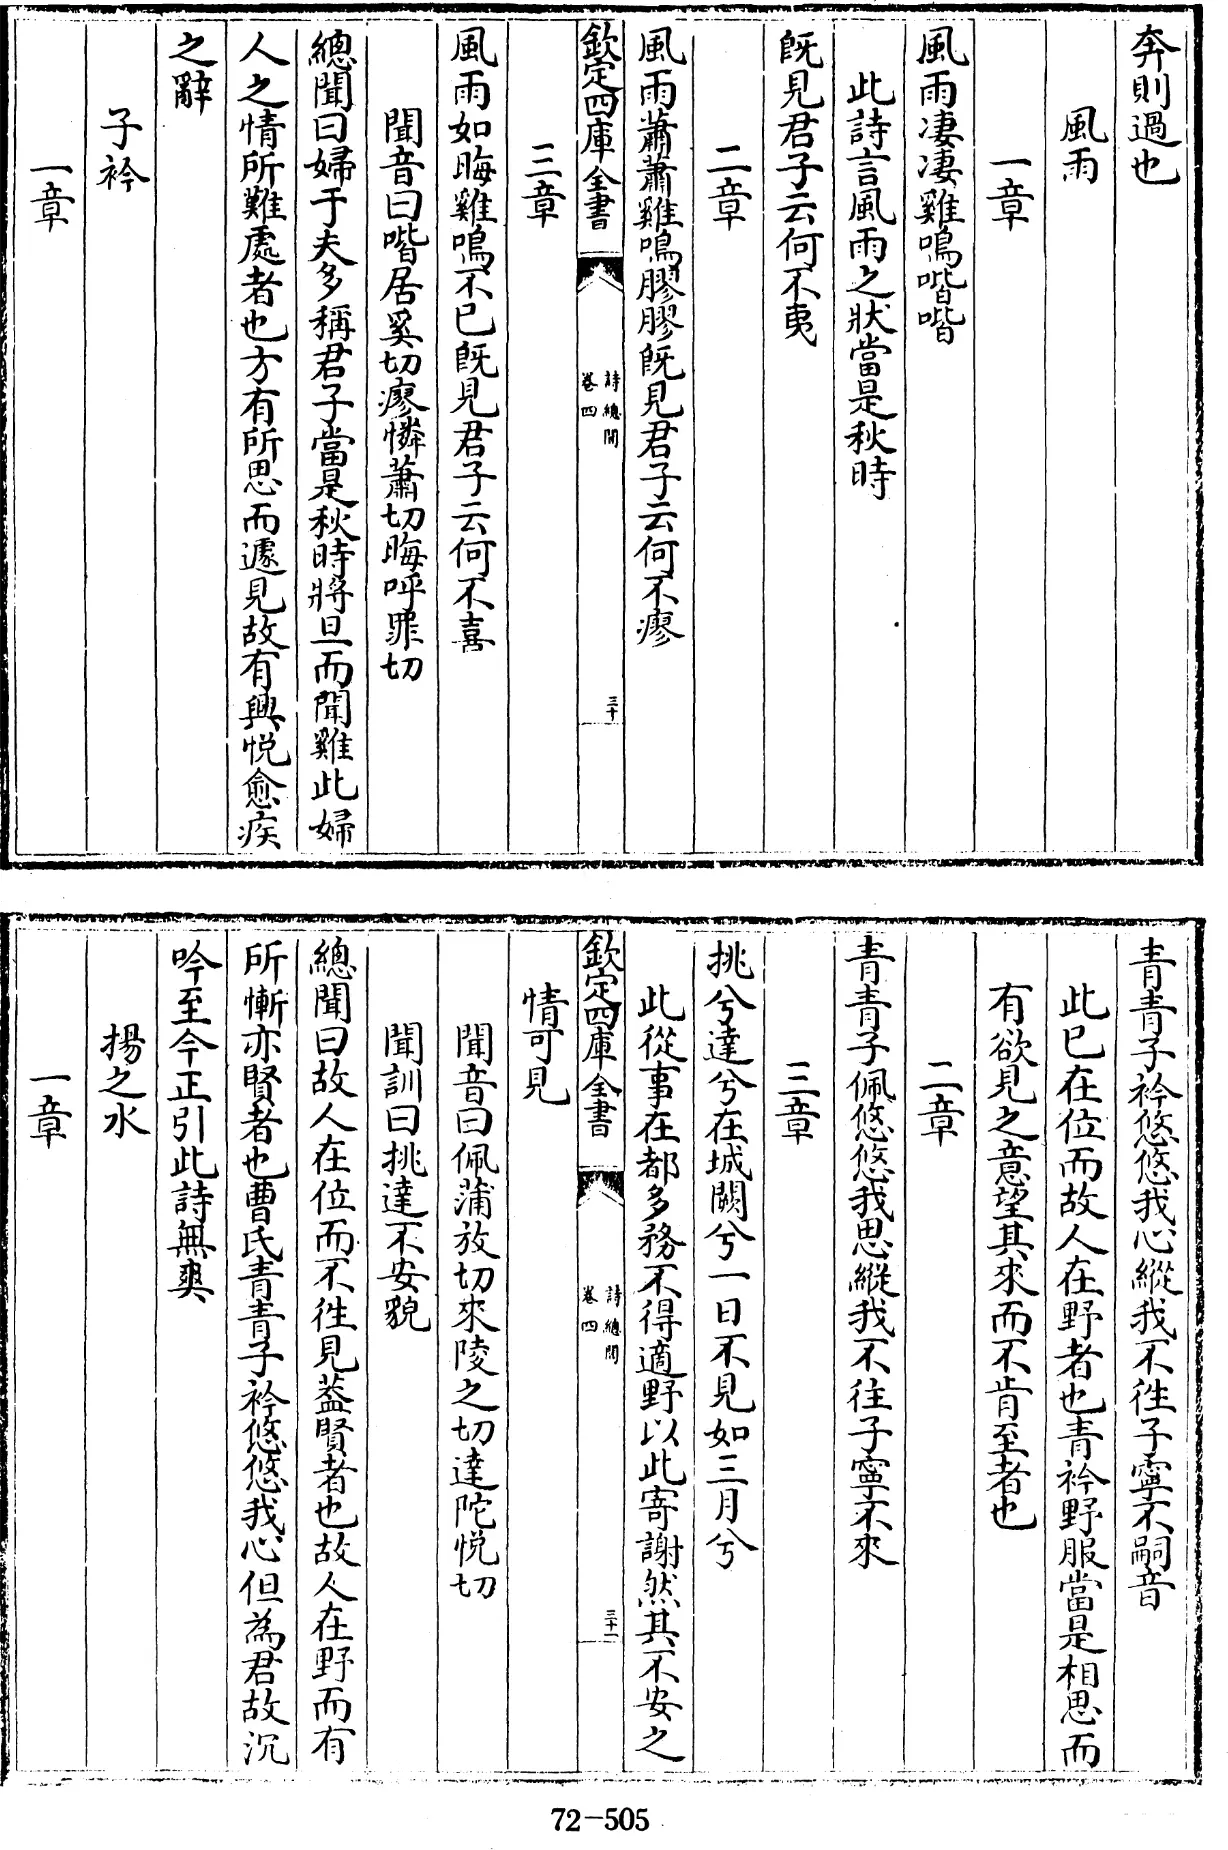 奔則過也
風雨
一章
風雨凄凄雞鳴喈喈
此詩言風雨之狀當是秋時
旣見君子云何不夷
二章
風雨蕭蕭雞鳴膠膠旣見君子云何不瘳
欽定四庫全書
詩總聞
卷四
三十
三章
風雨如晦雞鳴不已旣見君子云何不喜
聞音曰喈居奚切瘳憐蕭切晦呼罪切
總聞曰婦于夫多稱君子當是秋時將旦而聞雞此婦
人之情所難處者也方有所思而遽見故有興悅愈疾
之辭
子衿
一章
青青子衿悠悠我心縱我不往子寧不嗣音
此已在位而故人在野者也青衿野服當是相思而
有欲見之意望其來而不肯至者也
二章
青青子佩悠悠我思縱我不往子寧不來
三章
挑兮達兮在城闕兮一日不見如三月兮
此從事在都多務不得適野以此寄謝然其不安之
欽定四庫全書
詩總聞
卷四
三十一
情可見
聞音曰佩蒲放切來陵之切達陀悅切
聞訓曰挑達不安貌
總聞曰故人在位而不徃見葢賢者也故人在野而有
所慚亦賢者也曹氏青青子衿悠悠我心但為君故沉
吟至今正引此詩無爽
揚之水
一章
72-505